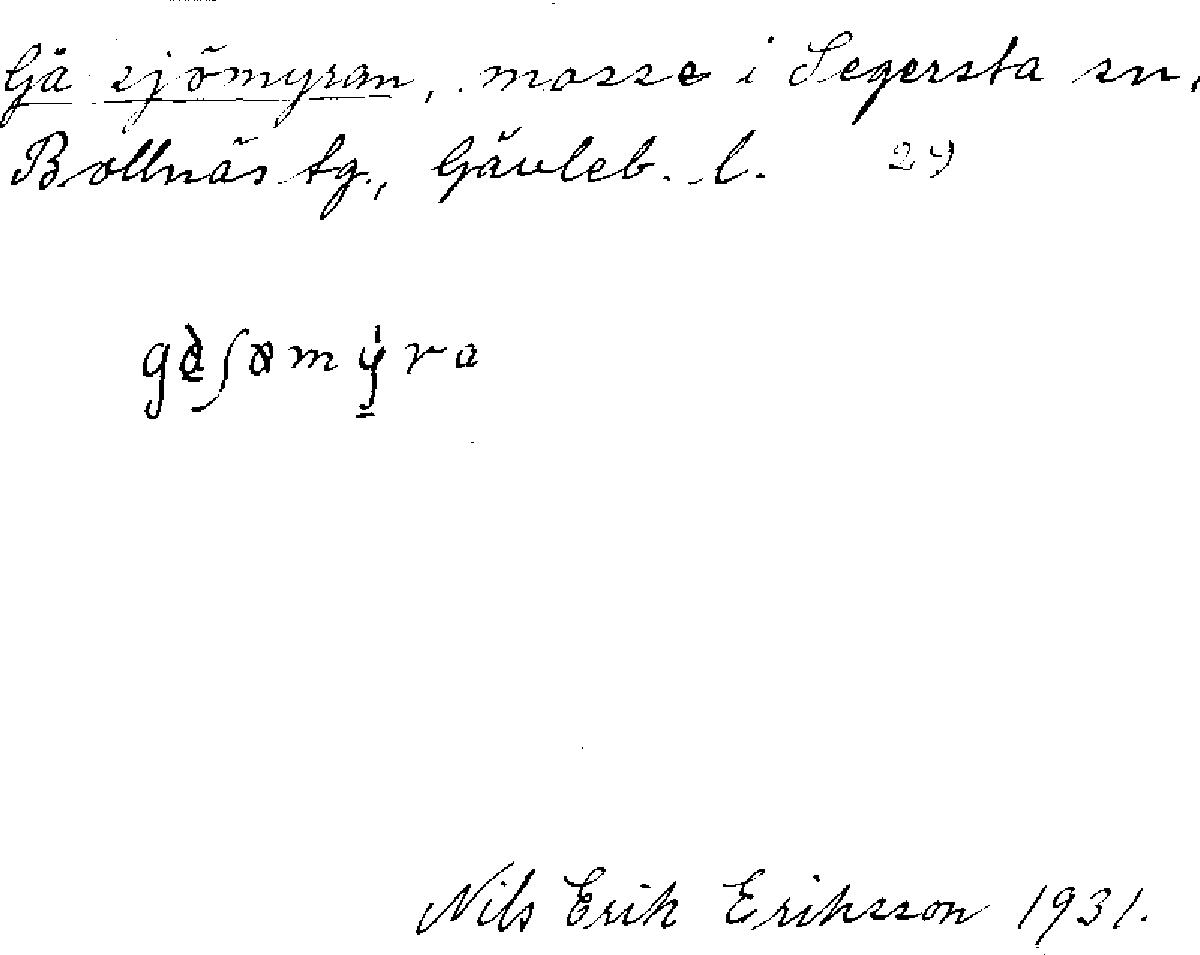 Gäsjömyran, mosse i Segersta sn,
Bollnäs tg., Gävleb. l. 29
Nils Erik Eriksson 1931.